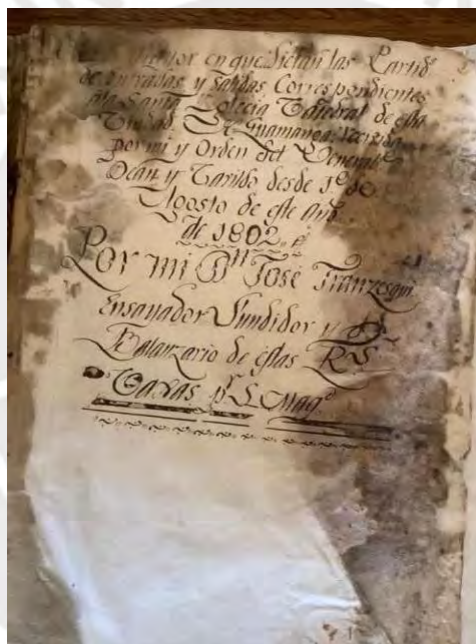 en que Sietan las Partids
de entradas y salidas Correspondientes
a la Santa Iglecia Catedral de esta
Ciudad de Guamanga
por mi y Orden del Venerable
Dean y Cavildo desde 1º de
Agosto de este Año
de 1802
Por mi Dn José
Ensayador Fundidor y
Balanzario de estas Rs
Caxas pr S. Magd